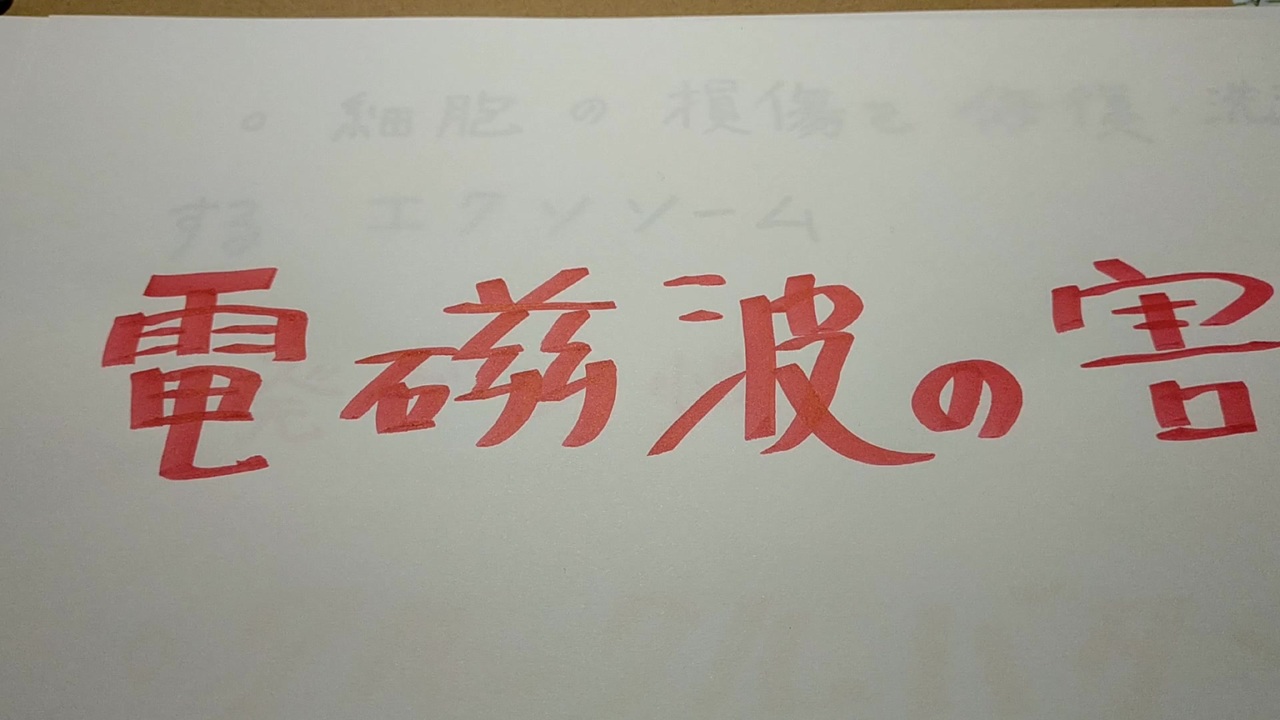 。細胞の損傷を修復
する エクソソーム
電磁波の害